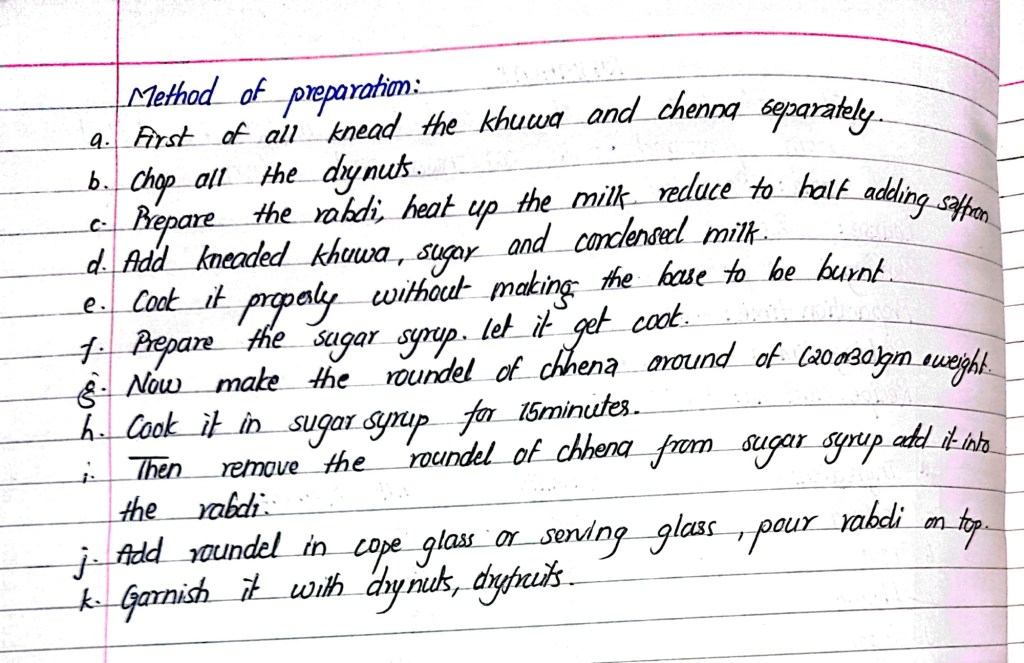 Method of preparation:
a. First of all knead the khuwa and chenna separately.
b. Chop all the drynuts.
c. Prepare the rabdi, heat up the milk reduce to half adding saffron
d. Add kneaded khuwa, sugar and condensed milk.
e. Cook it properly without making the base to be burnt.
f. Prepare the sugar syrup. let it get cook.
g. Now make the roundel of chhena around of (20 or 30)gm weight.
h. Cook it in sugar syrup for 15minutes.
i. Then remove the roundel of chhena from sugar syrup add it into
the rabdi.
j. Add roundel in cope glass or serving glass, pour rabdi on top.
k. Garnish it with drynuts, dryfruits.